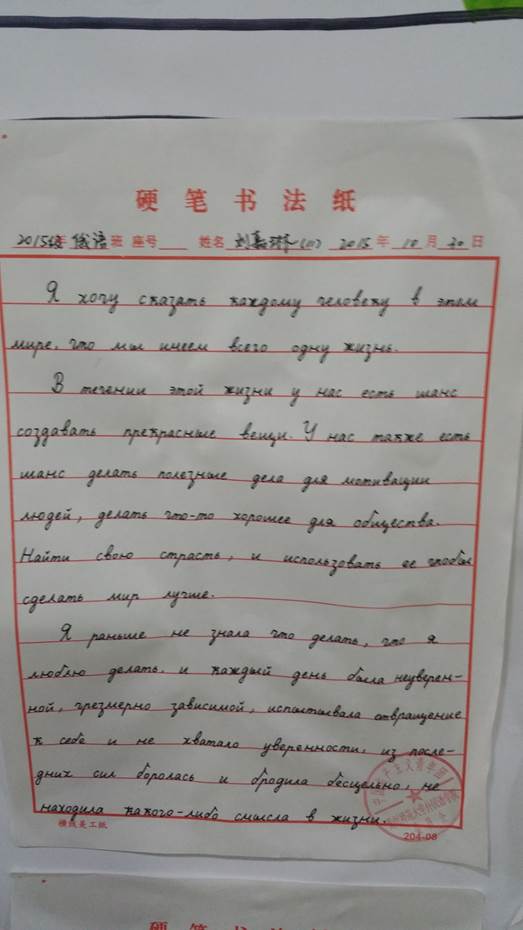 硬笔书法纸
2015级 俄语班 座号 姓名 刘嘉琳 2015年10月30日
Я хочу сказать каждому человеку в этом
мире, что мы имеем всего одну жизнь.
В течении этой жизни у нас есть шанс
создавать прекрасные вещи. У нас также есть
шанс делать полезные дела для мотивации
людей, делать что-то хорошее для общества.
Найти свою страсть, и использовать ее чтобы
сделать мир лучше.
Я раньше не знала что делать, что я
люблю делать. и каждый день была неуверен-
ной, чрезмерно зависимой, испытывала отвращение
к себе и не хватало уверенности, из после-
дних сил боролась и бродила бесцельно, не
находила какого-либо смысла в жизни.
204-08
硬笔书法纸